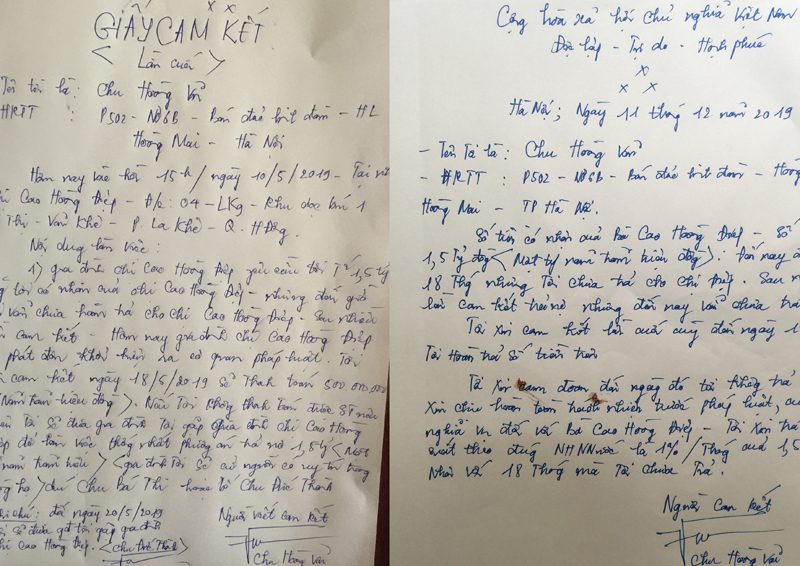 GIẤY CAM KẾT
< Lần cuối >
Tên tôi là: Chu Hoàng Vần
HKTT : P502 - NO6B - Bán đảo linh đàm - HL
Hoàng Mai - Hà Nội
Hôm nay vào hồi 15h / ngày 10/5/2019 - Tại
chị Cao Hoàng Điệp - Đ/c: 04 - LK9 - Khu
Thị - Văn Khê - P. La Khê - Q. H Đông.
Nội dung làm việc:
1) gia đình chị Cao Hoàng Điệp yêu cầu tôi 1,5 tỷ
tôi có nhận của chị Cao Hoàng Điệp - nhưng đến giờ
vẫn chưa hoàn trả cho chị Cao Hoàng Điệp. Sau nhiều
cam kết - Hôm nay gia đình chị Cao Hoàng Điệp
phát đơn khởi kiện ra cơ quan pháp luật. Tôi
cam kết ngày 18/5/2019 sẽ Thanh toán 500.000.000
Năm trăm triệu đồng). Nếu Tôi không thanh toán được số
Tôi sẽ đưa gia đình Tôi gặp gia đình chị Cao Hoàng
để làm việc thống nhất phương án trả nợ 1,5 tỷ < Một
năm trăm triệu > < gia đình Tôi sẽ cử người có uy tín trong
họ > chú Chu Bá Thi - hoặc Chu Đức Thành
chú: đến ngày 20/5/2019
sẽ đưa gặp gia đình
chị Cao Hoàng Điệp. < Chu Đức Thành >
Người viết cam kết
Chu Hoàng Vần
Cộng hòa xã hội chủ nghĩa Việt Nam
Độc lập - Tự do - Hạnh phúc
Hà Nội; Ngày 11 tháng 12 năm 2019
- Tên Tôi là: Chu Hoàng Vần
- HKTT : P502 - NO6B - Bán đảo linh đàm - Hoàng
Hoàng Mai - TP Hà Nội.
Số tiền có nhận của Bà Cao Hoàng Điệp - Số
1,5 Tỷ đồng < Một tỷ năm trăm triệu đồng >: Đến nay
18 Tháng nhưng Tôi chưa trả cho chị Điệp. Sau
lần cam kết trả nợ nhưng đến nay vẫn chưa trả
Tôi xin cam kết lần cuối cùng đến ngày 1
Tôi Hoàn trả Số tiền trên
Tôi xin cam đoan đến ngày đó tôi không trả
xin chịu hoàn toàn trách nhiệm trước pháp luật,
nghĩa vụ đối với Bà Cao Hoàng Điệp - Tôi xin trả
suất theo đúng NHNNước là 1% / Tháng của 1,5
Nhân với 18 Tháng mà Tôi chưa Trả.
Người Cam kết
Chu Hoàng Vần